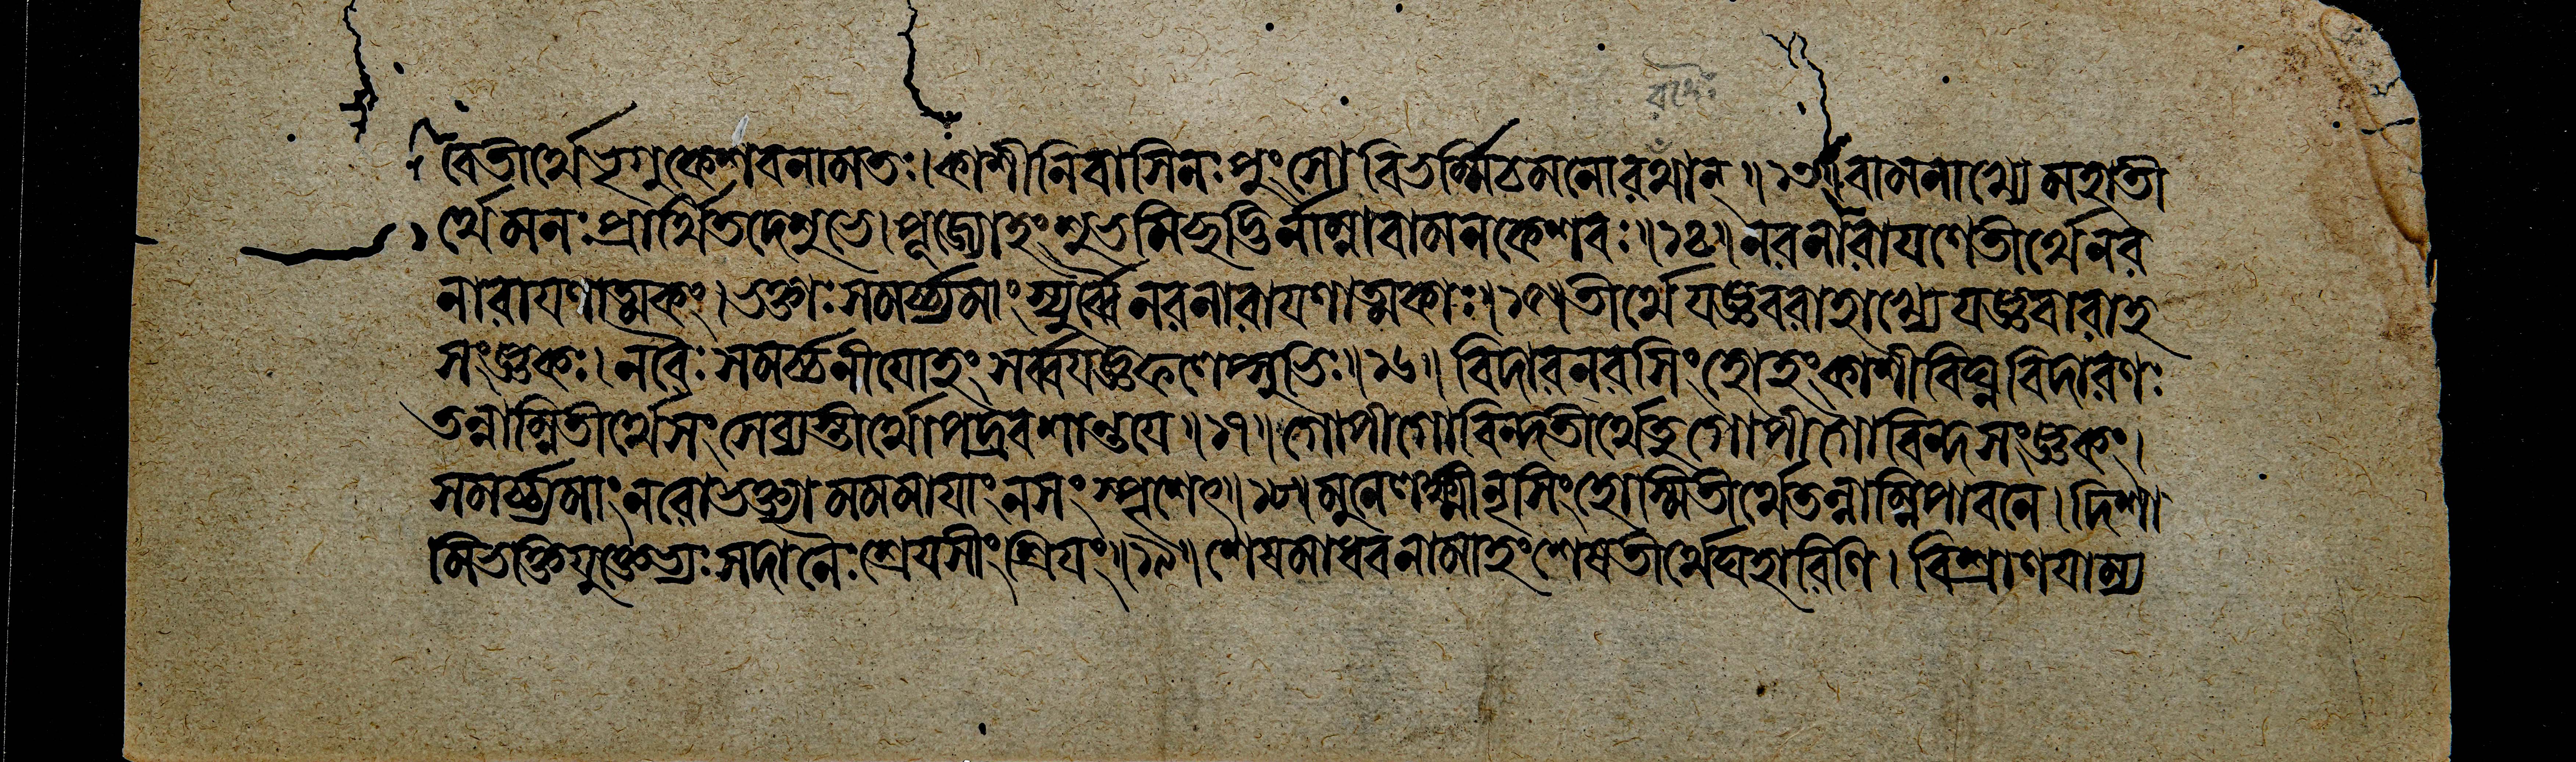 র্বৈঃ
বেতীর্থেভৃগুকেশবনামতঃ।কাশীনিবাসিনঃপুংসো বিভর্ম্মিচমনোরথান্॥১৩॥বামনাখ্যেমহাতী
র্থেমনঃপ্রার্থিতদেশুভে।পূজ্যোহংশুভমিচ্ছদ্ভির্নাম্নাবামনকেশবঃ॥১৪॥নরনারায়ণেতীর্থেনর
নারায়ণাত্মকং।ভক্তাঃসমর্চ্চ্যমাংস্যুর্ব্বৈনরনারায়ণাত্মকাঃ॥১৫॥তীর্থেযজ্ঞবরাহাখ্যেযজ্ঞবারাহ
সংজ্ঞকঃ।নরৈঃসমর্চ্চনীয়োহংসর্ব্বযজ্ঞফলেপ্সুভিঃ॥১৬॥বিদারনরসিংহোহংকাশীবিঘ্নবিদারণঃ
তন্নাম্নিতীর্থেসংসেব্যস্তীর্থোপদ্রবশান্তয়ে॥১৭॥গোপীগোবিন্দতীর্থেতুগোপীগোবিন্দসংজ্ঞকং।
সমর্চ্চ্যমাংনরোভক্ত্যামমমায়াংনসংস্পৃশেৎ॥১৮॥মুনেলক্ষ্মীনৃসিংহোস্মিতীর্থেতন্নাম্নিপাবনে।দিশা
মিভক্তিযুক্তেভ্যঃসদানৈঃশ্রেয়সীংশ্রিয়ং॥১৯॥শেষমাধবনামাহংশেষতীর্থেঘহারিণি।বিশ্রাণয়াম্য